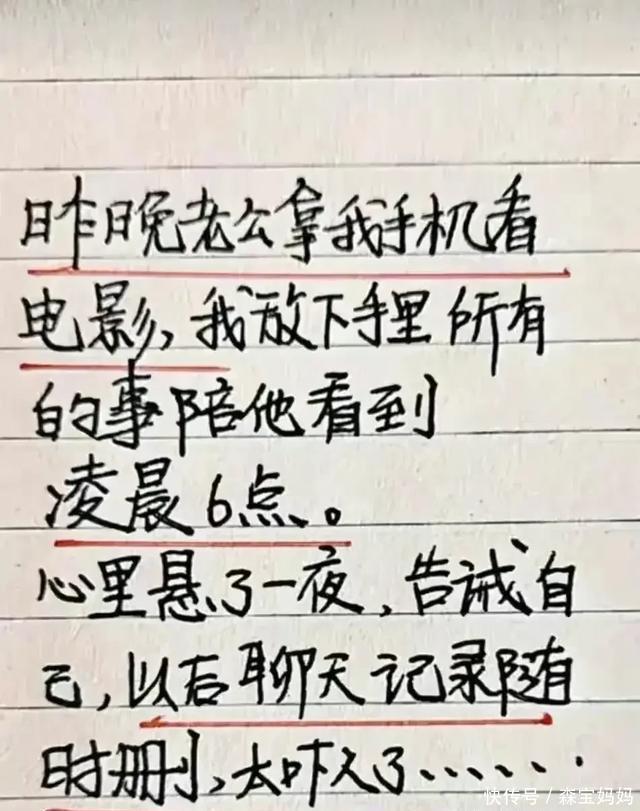 昨晚老公拿我手机看
电影,我放下手里所有
的事陪他看到
凌晨6点。
心里悬了一夜,告诫自
己,以后聊天记录随
时删,太吓人了......
快传号/森宝妈妈